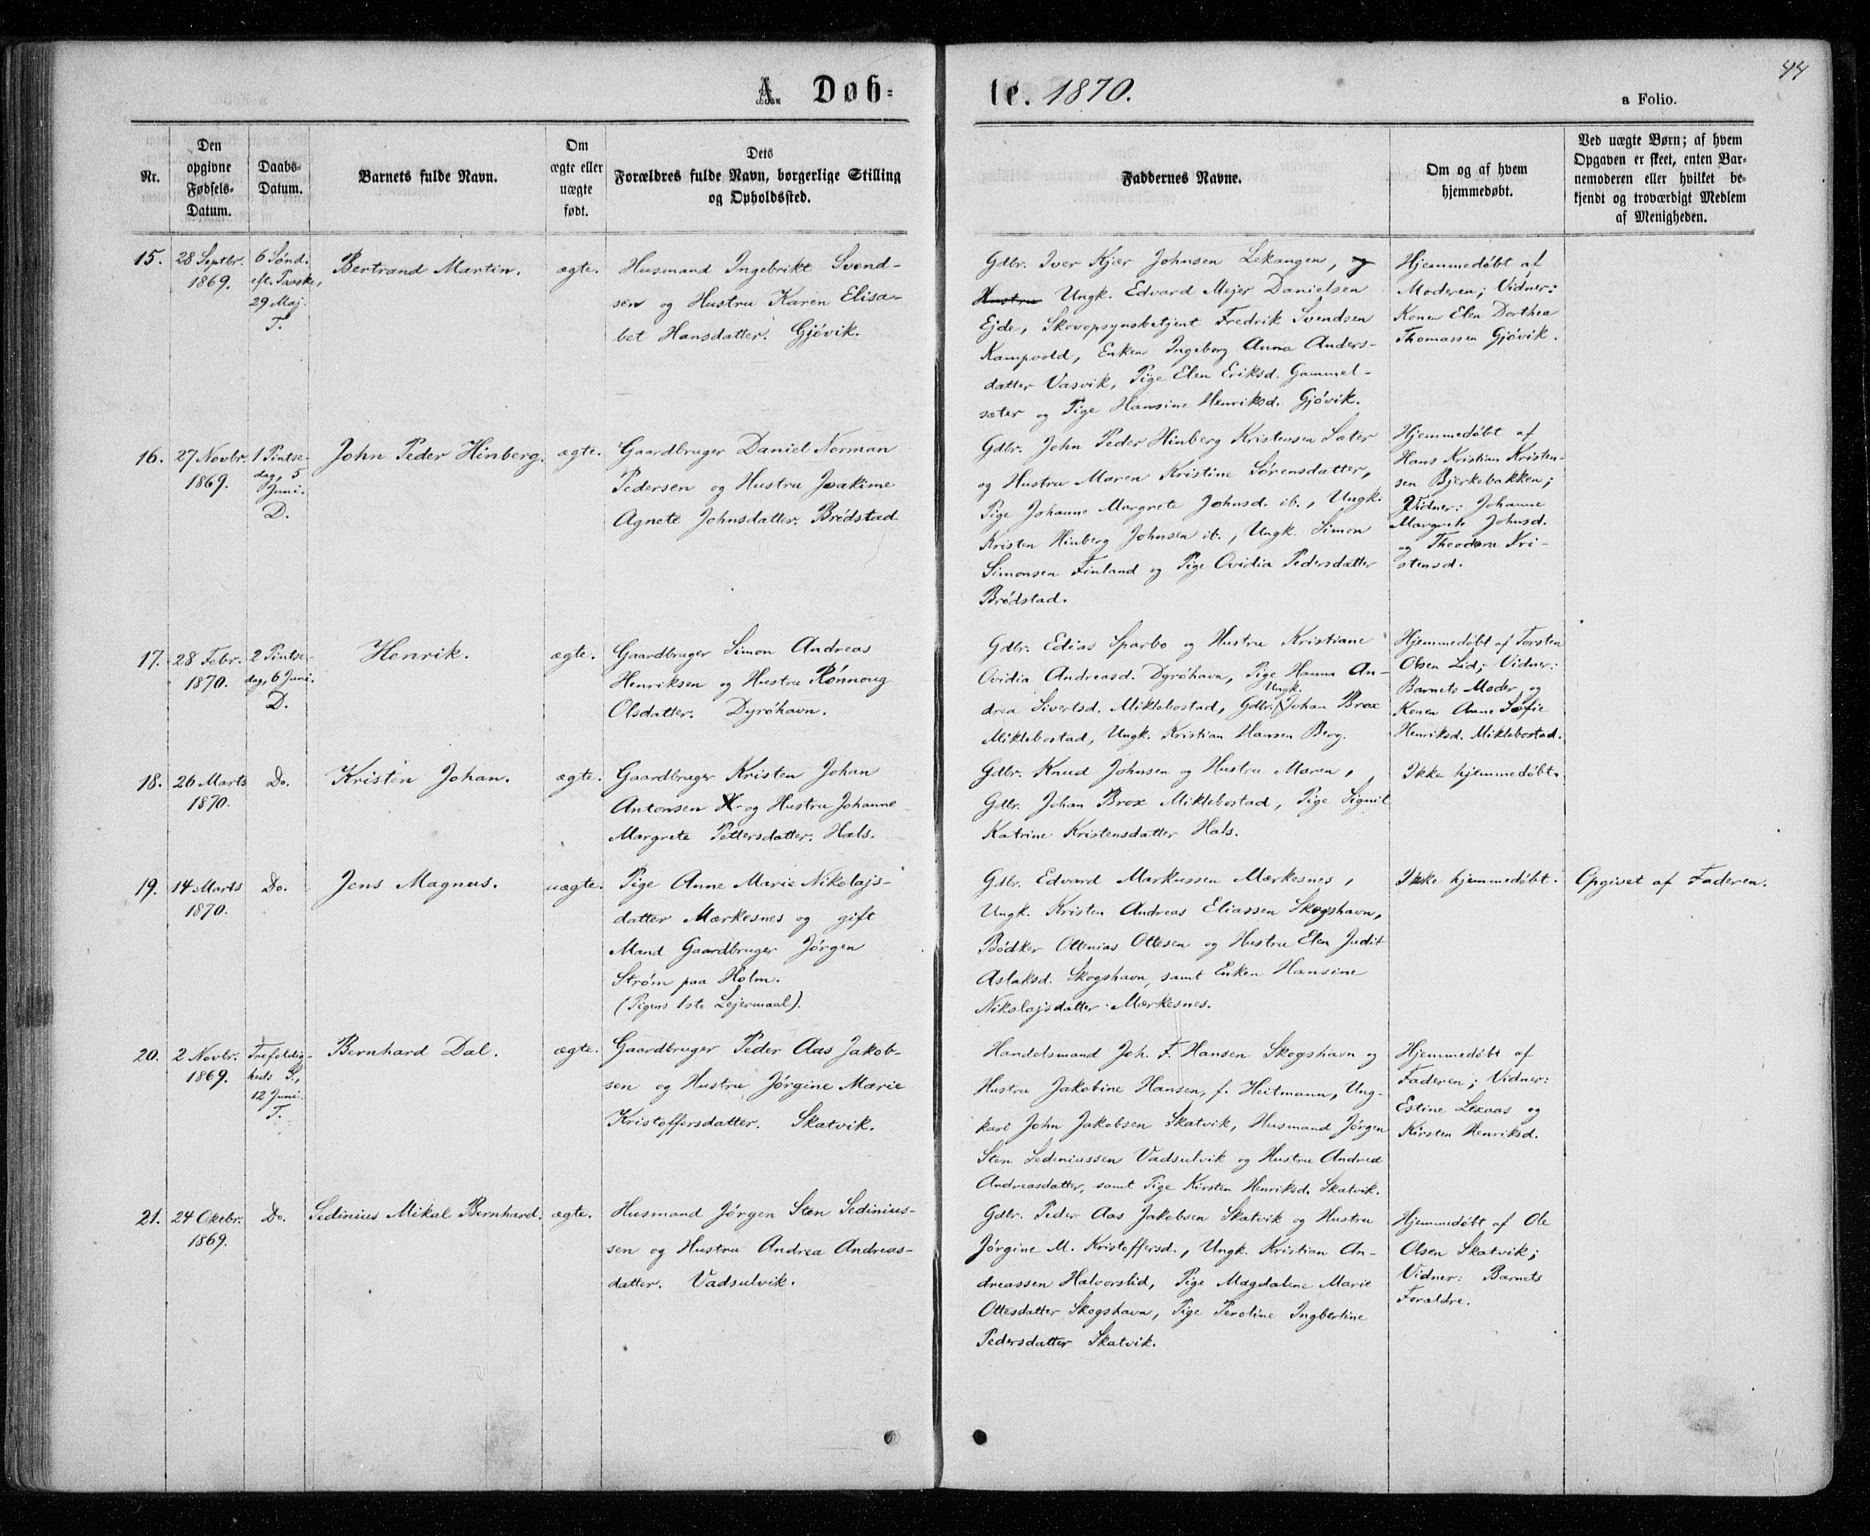 44
A. Døb-
te. 1870.
a Folio.
Nr.
Den
opgivne
Fødsels-
Datum.
Daabs-
Datum.
Barnets fulde Navn.
Om
ægte eller
uægte
født.
Dets
Forældres fulde Navn, borgerlige Stilling
og Opholdssted.
Faddernes Navne.
Om og af hvem
hjemmedøbt.
Ved uægte Børn; af hvem
Opgaven er skeet, enten Bar-
nemoderen eller hvilket be-
kjendt og troværdigt Medlem
af Menigheden.
15.
28 Septbr.
1869.
6 Sønd.
eft. Paaske,
29 Maj.
T.
Bertrand Martin.
ægte.
Husmand Ingebrikt Svend-
sen og Hustru Karen Elisa-
bet Hansdatter. Gjøvik.
Gdbr. Iver Kjær Johnsen Lekangen, og
Hustru Ungk. Edvard Mejer Danielsen
Ejde, Skovopsynsbetjent Fredrik Svendsen
Kampvold, Enken Ingeborg Anna Anders-
datter Vasvik, Pige Elen Eriksd. Gammel-
sæter og Pige Hansine Henriksd. Gjøvik.
Hjemmedøbt af
Moderen; Vidner:
Konen Elen Dorthea
Thomassen Gjøvik.
16.
27 Novbr.
1869.
1 Pintse-
dag, 5
Juni.
D.
John Peder Hinberg.
ægte.
Gaardbruger Daniel Norman
Pedersen og Hustru Joakime
Agnete Johnsdatter. Brødstad.
Gdbr. John Peder Hinberg Kristensen Sæter
og Hustru Maren Kristine Sørensdatter,
Pige Johanne Margrete Johnsd. ib., Ungk.
Kristen Hinberg Johnsen ib., Ungk. Simon
Simonsen Finland og Pige Ovidia Pedersdatter
Brødstad.
Hjemmedøbt af
Hans Kristian Kristen-
sen Bjerkebakken;
Vidner: Johanne
Margrete Johnsd.
og Theodora Kri-
stensd.
17.
28 Febr.
1870.
2 Pintse-
dag, 6 Juni.
D.
Henrik.
ægte.
Gaardbruger Simon Andreas
Henriksen og Hustru Rønnoug
Olsdatter. Dyrøhavn.
Gdbr. Edias Sparbo og Hustru Kristiane
Ovidia Andreasd. Dyrøhavn, Pige Hanna An-
drea Sivertsd. Miklebostad, Gdbr. Ungk. Johan Brox
Miklebostad, Ungk. Kristian Hansen Berg.
Hjemmedøbt af Torsten
Olsen Lid; Vidner:
Barnets Moder og
Konen Anne Sofie
Henriksd. Miklebostad.
18.
26 Marts
1870.
Do.
Kristen Johan.
ægte.
Gaardbruger Kristen Johan
Antonsen H. og Hustru Johanne
Margrete Pettersdatter. Hals.
Gdbr. Knud Johnsen og Hustru Maren,
Gdbr. Johan Brox Miklebostad, Pige Signil
Katrine Kristensdatter Hals.
Ikke hjemmedøbt.
19.
14 Marts
1870.
Do.
Jens Magnus.
uægte.
Pige Anne Marie Nikolajs-
datter Mærkesnes og gift
Mand Gaardbruger Jørgen
Strøm paa Holm.
(Pigens 1ste Lejermaal).
Gdbr. Edvard Markussen Mærkesnes,
Ungk. Kristen Andreas Eliassen Skogshavn,
Bødker Ottenias Ottesen og Hustru Elen Judit
Aslaksd. Skogshavn, samt Enken Hansine
Nikolajsdatter Mærkesnes.
Ikke hjemmedøbt.
Opgivet af Faderen.
20.
2 Novbr.
1869.
Trefoldig-
heds S.,
12 Juni.
T.
Bernhard Dal.
ægte.
Gaardbruger Peder Aas Jakob-
sen og Hustru Jørgine Marie
Kristoffersdatter. Skatvik.
Handelsmand Joh. F. Hansen Skogshavn og
Hustru Jakobine Hansen, f. Heitmann, Ung-
karl John Jakobsen Skatvik, Husmand Jørgen
Sten Sediniussen Vadsulvik og Hustru Andrea
Andreasdatter, samt Pige Kirsten Henriksd. Skatvik.
Hjemmedøbt af
Faderen; Vidner:
Estine Lexaas og
Kirsten Henriksd.
21.
24 Oktbr.
1869.
Do.
Sedinius Mikal Bernhard.
ægte.
Husmand Jørgen Sten Sedinius-
sen og Hustru Andrea Andreas-
datter. Vadsulvik.
Gdbr. Peder Aas Jakobsen Skatvik og Hustru
Jørgine M. Kristoffersd., Ungk. Kristian An-
dreassen Halvorslid, Pige Magdalene Marie
Ottesdatter Skogshavn, Pige Peroline Ingbertine
Pedersdatter Skatvik.
Hjemmedøbt af Ole
Olsen Skatvik;
Vidner: Barnets
Forældre.